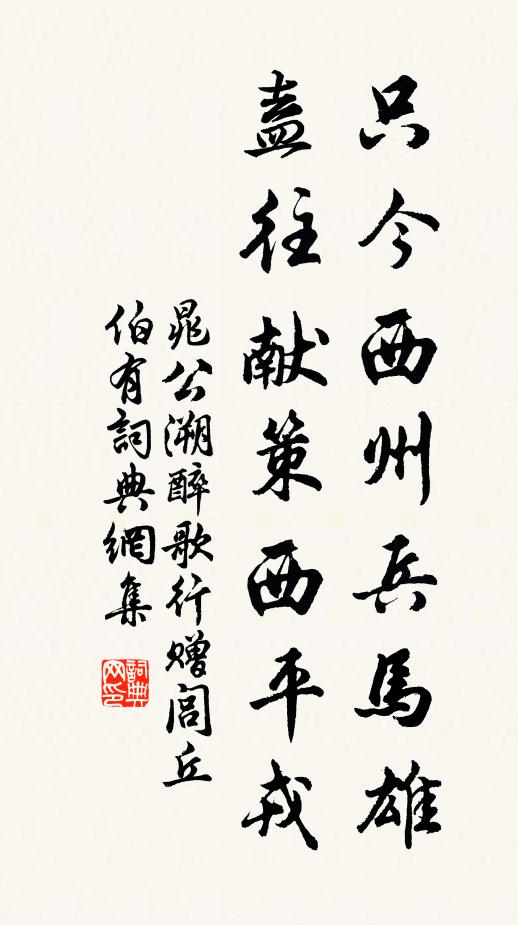 只今西州兵馬雄
盍往献策西平戎
晁公溯醉歌行赠闾丘
伯有詞典網集
詞典
网印